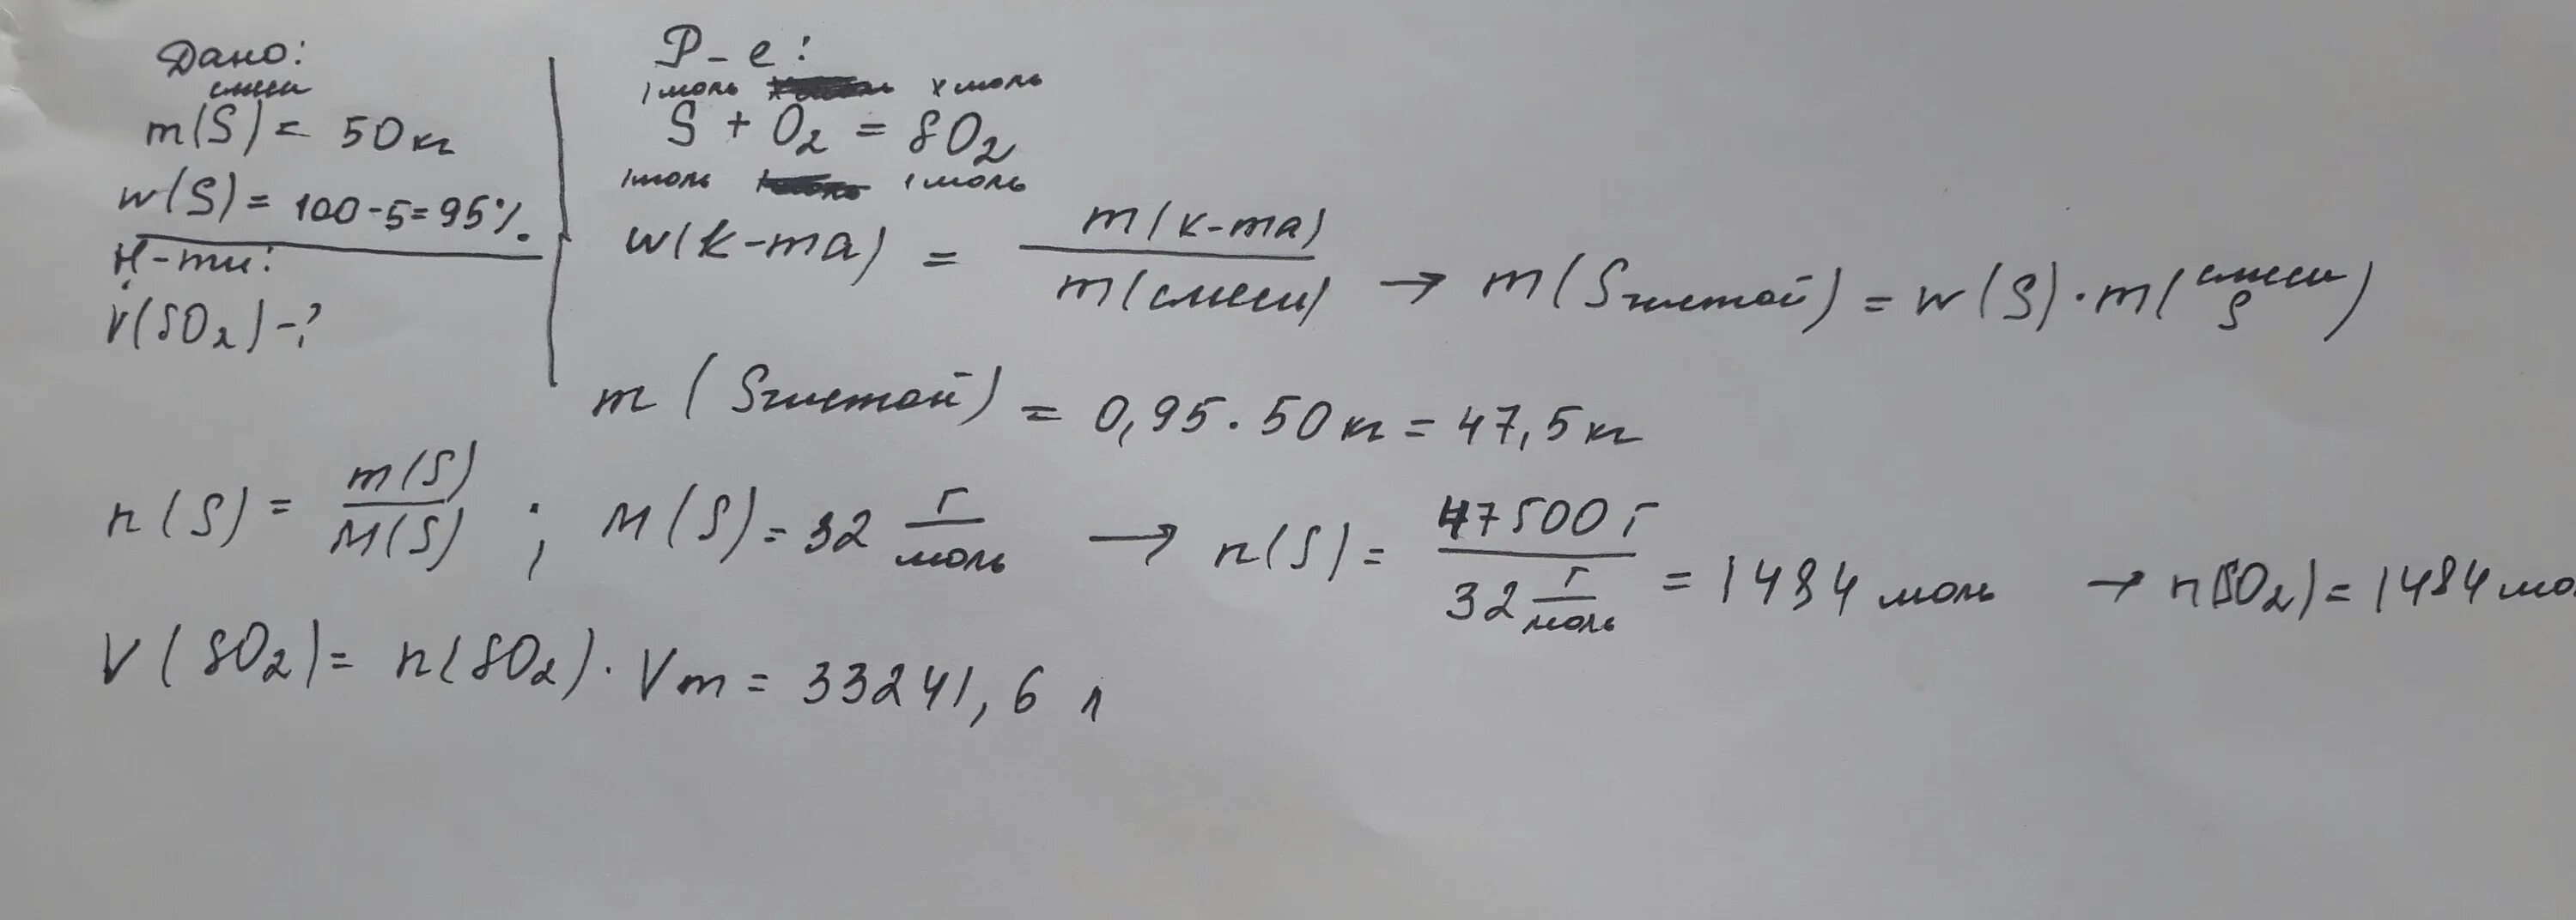 Дано:
смеси
m(S) = 50 кг
w(S) = 100-5=95%.
Н-ти:
V(SO2) -?
Р-е:
1 моль х моль
S + O2 = SO2
1 моль 1 моль
w(к-та) = m(к-та) / m(смеси) → m(Sчистой) = w(S) · m(смеси S)
m (Sчистой) = 0,95 · 50 кг = 47,5 кг
n(S) = m(S) / M(S) ; M(S) = 32 г/моль → n(S) = 47500 г / 32 г/моль = 1484 моль → n(SO2) = 1484 мо
V(SO2) = n(SO2) · Vm = 33241,6 л